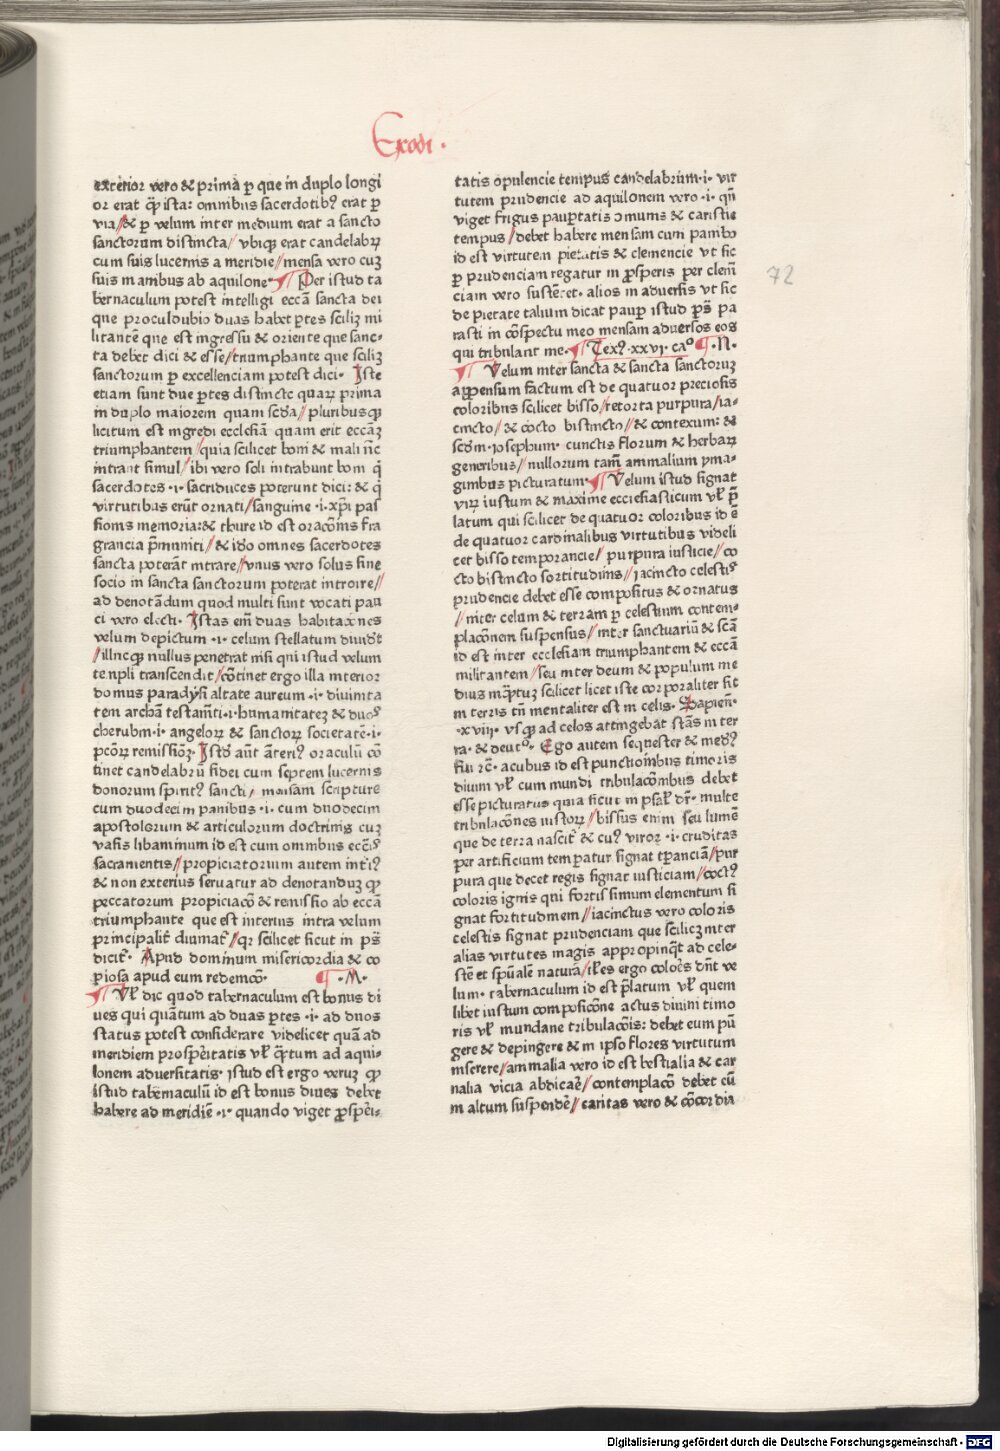 Exodi.
exterior vero & prima ꝑ que in duplo longi
or erat qͥ ista: omnibus sacerdotibꝰ erat ꝑ
via/& ꝑ velum inter medium erat a sancto
sanctorum distincta/ vbiqꝫ erat candelabꝝ
cum suis lucernis a meridie/mensa vero cuꝫ
suis manibus ab aquilone. ¶ Per istud ta
bernaculum potest intelligi eccā sancta dei
que proculdubio duas habet ꝑtes sciliꝫ mi
litantē que est ingressu & oriente que sanc-
ta debet dici & esse/triumphante que sciliꝫ
sanctorum ꝑ excellenciam potest dici. Iste
etiam sunt due ꝑtes distincte quaꝝ prima
in duplo maiorem quam scd̄a/pluribusqꝫ
licitum est ingredi ecclesiā quam erit eccāꝫ
triumphantem/quia scilicet boni & mali nc̄
intrant simul/ibi vero soli intrabunt boni q̄
sacerdotes .i. sacriduces poterunt dici: & q̄
virtutibus erūt ornati/sanguine .i. xp̄i pas
sionis memoria: & thure id est oracōnis fra
grancia p̄muniti/& ido omnes sacerdotes
sancta poterāt intrare/vnus vero solus sine
socio in sancta sanctorum poterat introire//
ad denotādum quod multi sunt vocati pau
ci vero electi. Istas em̄ duas habitacōnes
velum depictum .i. celum stellatum diuidit
/illucqꝫ nullus penetrat nisi qui istud velum
templi transcendit/cōtinet ergo illa interior
domus paradysi altate aureum .i. diuinita
tem archā testam̄ti .i. humanitateꝫ & duoˢ
cherubin .i. angeloꝝ & sanctoꝝ societatē .i.
pccōꝝ remissiōꝫ. Istd̄ aūt āreriꝰ oraculū cō
tinet candelabrū fidei cum septem lucernis
donorum spiritꝰ sancti/ mensam scripture
cum duodecim panibus .i. cum duodecim
apostolorum & articulorum doctrinis cuꝫ
vasis libaminum id est cum omnibus eccīeˢ
sacramentis//propiciatorium autem intˢiꝰ
& non exterius seruatur ad denotanduꝫ qꝫ
peccatorum propiciacō & remissio ab eccā
triumphante que est interius intra velum
principalit̄ diumat̄/qꝛ scilicet sicut in ps̄
dicit̄. Apud dominum misericordia & co
piosa apud eum redemcō. ¶ .M.
¶ Vƚ dic quod tabernaculum est bonus di
ues qui quātum ad duas ꝑtes .i. ad duos
status potest considerare videlicet quā ad
meridiem prosperitatis vƚ qͣtum ad aqui-
lonem aduersitatis. istud est ergo veruꝫ qꝫ
istud tabernaculū id est bonus diues debet
habere ad meridiē .i. quando viget ꝓsperi-
tatis opulencie tempus candelabrum .i. vir
tutem prudencie ad aquilonem vero .i. qn̄
viget frigus pauꝑtatis omnus & caristie
tempus/debet habere mensam cum panibꝰ
id est virtutem pietatis & clemencie vt sic
ꝑ prudenciam regatur in ꝓsperis per clem̄
ciam vero sustēret. alios in aduersis vt sic
de pietate talium dicat pauꝑ istud ps̄ pa
rasti in cōspectu meo mensam aduersos eos
qui tribulant me. ¶ Texꝰ. xxvi. caº ¶ .N.
¶ Velum inter sancta & sancta sanctoruꝫ
appensum factum est de quatuor preciosis
coloribus scilicet bisso/retorta purpura/ia-
cincto/& cocto bistincto//& contexum: &
scdm̄. iosephum. cunctis florum & herbaꝝ
generibus/nullorum tam̄ animalium yma-
ginibus picturatum. ¶ Velum istud signat
viꝝ iustum & maxime ecclesiasticum vƚ p̄
latum qui scilicet de quatuor coloribus id ē
de quatuor cardinalibus virtutibus videli
cet bisso temporancie/ purpura iusticie/co
cto bistincto fortitudinis/iacincto celestiˢ
prudencie debet esse compositus & ornatus
/inter celum & terram ꝑ celestium contem-
placōnem suspensus/inter sanctuariū & scā
id est inter ecclesiam triumphantem & eccā
militantem/seu inter deum & populum me
dius inꝑtuꝫ scilicet licet iste corporaliter sit
in terris tn̄ mentaliter est in celis. Sapien̄.
.xviij. vsqꝫ ad celos attingebat stās in ter
ra. & deutº. Ego autem sequester & medꝰ
fui ⁊c̄. acubus id est punctionibus timoris
diuini vƚ cum mundi tribulacōnibus debet
esse picturatus quia sicut in psaƚ dr̄. multe
tribulacōnes iustoꝝ//bissus enim seu lumē
que de terra nascit̄ & cuꝰ viroꝝ .i. cruditas
per artificium temperatur signat tꝑanciā//pur
pura que decet regis signat iusticiam//coctꝰ
coloris ignis qui fortissimum elementum si
gnat fortitudinem//iacinctus vero coloris
celestis signat prudenciam que sciliꝫ inter
alias virtutes magis appropinq̄t ad cele-
stē et spūalē naturā/ iƚes ergo colores dn̄t ve
lum. tabernaculum id est p̄latum vƚ quem
libet iustum composicōne actus diuini timo
ris vƚ mundane tribulacōis: debet eum pū
gere & depingere & in ipso flores virtutum
inserere/animalia vero id est bestialia & car
nalia vicia abdicaē/contemplacō debet eū
in altum suspendē//caritas vero & cōcordia
72
Digitalisierung gefördert durch die Deutsche Forschungsgemeinschaft - DFG